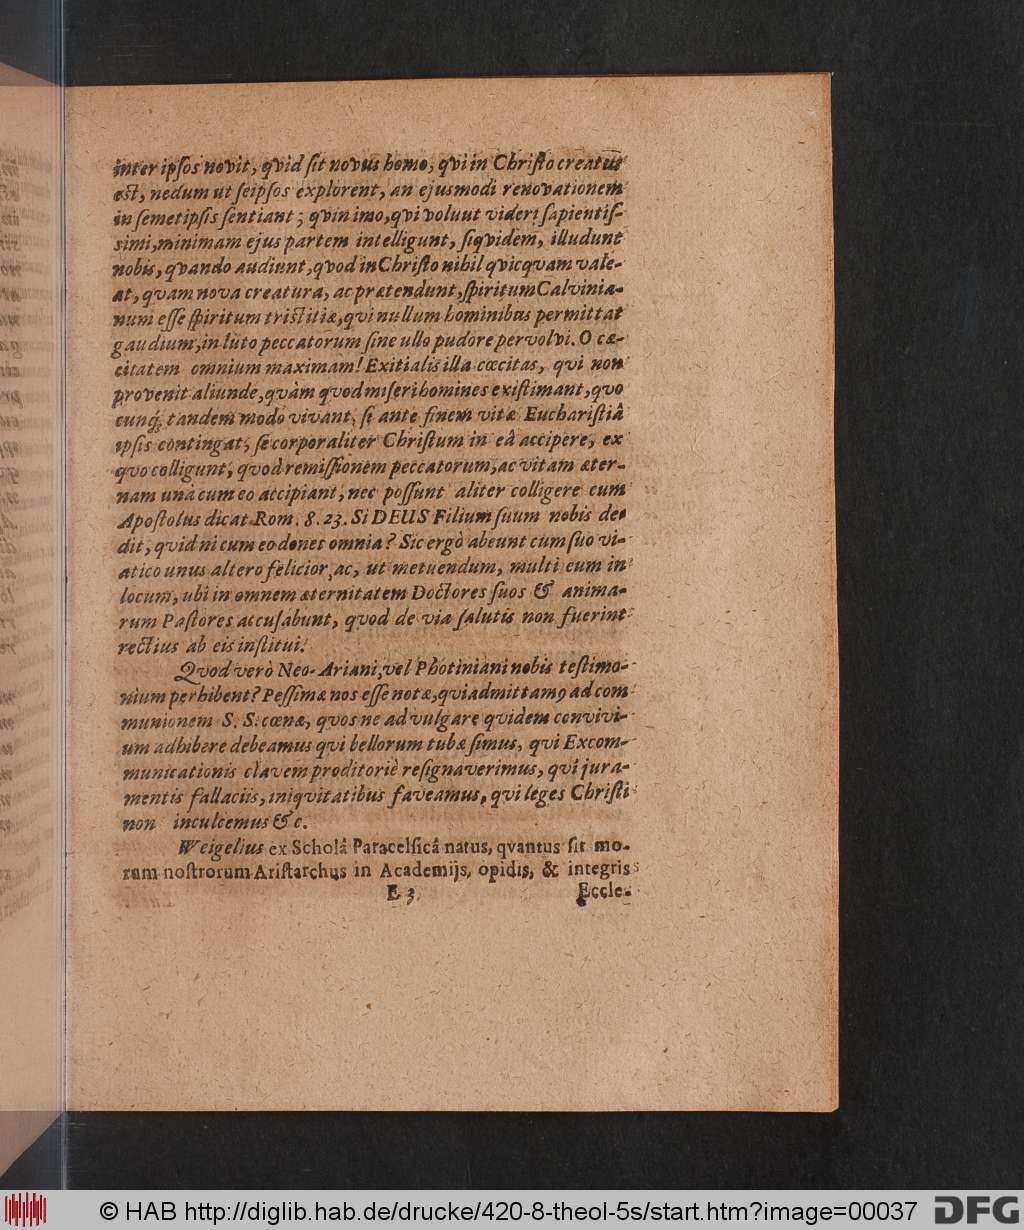 inter ipſos novit, qvid ſit novus homo, qvi in Chriſto creatus
eſt, nedum ut ſeipſos explorent, an ejusmodi renovationem
in ſemetipſis ſentiant; qvin imo, qvi volunt videri ſapientiſ-
ſimi, minimam ejus partem intelligunt, ſiqvidem, illudunt
nobis, qvando audiunt, qvod in Chriſto nihil qvicqvam vale-
at, qvam nova creatura, ac prætendunt, ſpiritum Calvinia-
num eſſe ſpiritum triſtitiæ, qvi nullum hominibus permittat
gaudium, in luto peccatorum ſine ullo pudore pervolvi. O cæ-
citatem omnium maximam! Exitialis illa cœcitas, qvi non
provenit aliunde, qvàm qvod miſeri homines exiſtimant, qvo
cunq́; tandem modo vivant, ſi ante finem vitæ Euchariſtiâ
ipſis contingat, ſe corporaliter Chriſtum in eâ accipere, ex
qvo colligunt, qvod remiſſionem peccatorum, ac vitam æter-
nam unà cum eo accipiant, nec poſſunt aliter colligere cum
Apoſtolus dicat Rom. 8. 23. Si DEUS Filium ſuum nobis de-
dit, qvid ni cum eo donet omnia? Sic ergò abeunt cum ſuo vi-
atico unus altero felicior, ac, ut metuendum, multi eum in
locum, ubi in omnem æternitatem Doctores ſuos & anima-
rum Paſtores accuſabunt, qvod de via ſalutis non fuerint
rectius ab eis inſtitui.
Qvod verò Neo-Ariani, vel Photiniani nobis teſtimo-
nium perhibent? Peſſimæ nos eſſe notæ, qvi admittamꝰ ad com
munionem S. S. cœnæ, qvos ne ad vulgare qvidem convivi-
um adhibere debeamus qvi bellorum tubæ ſimus, qvi Excom-
municationis clavem proditoriè reſignaverimus, qvi jura-
mentis fallaciis, iniqvitatibus faveamus, qvi leges Chriſti
non inculcemus &c.
Weigelius ex Scholâ Paracelſicâ natus, qvantus ſit mo-
rum noſtrorum Ariſtarchus in Academijs, opidis, & integris
E 3
Eccle-
© HAB http://diglib.hab.de/drucke/420-8-theol-5s/start.htm?image=00037
DFG